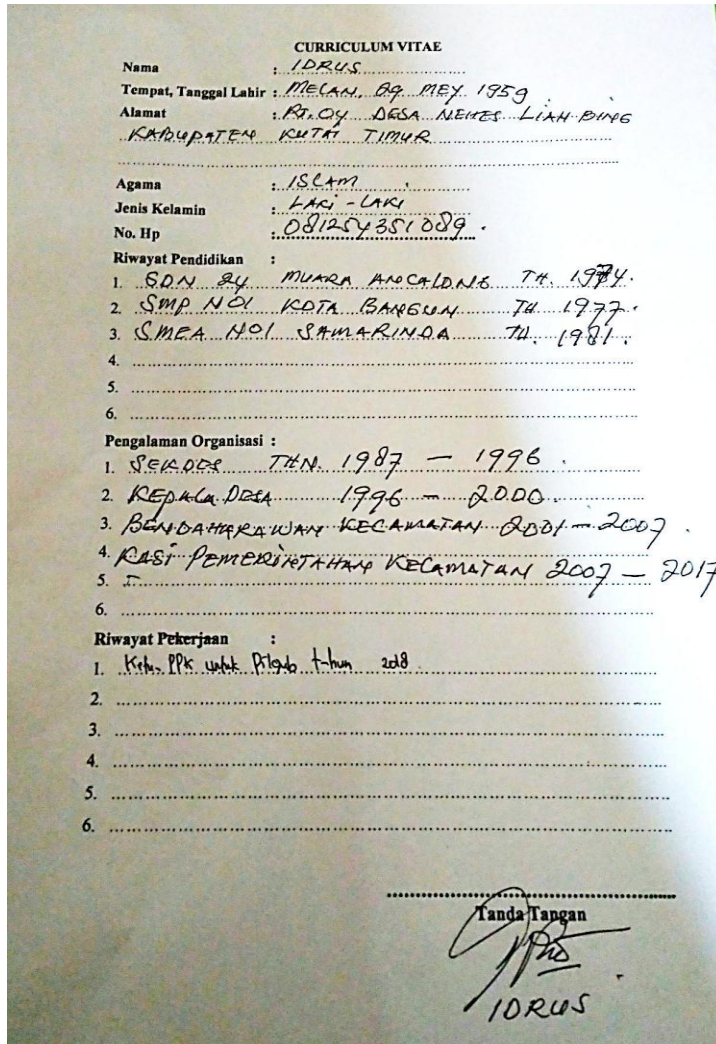 CURRICULUM VITAE
Nama : IDRUS
Tempat, Tanggal Lahir : MELAN, 09 MEY 1959
Alamat : RT. 04 DESA NEHES LIAH BING
KABUPATEN KUTAI TIMUR
Agama : ISLAM
Jenis Kelamin : LAKI - LAKI
No. Hp : 081254351089.
Riwayat Pendidikan :
1. SDN 24 MUARA ANCALONG TH. 1974.
2. SMP NO1 KOTA BANGUN TH 1977.
3. SMEA NO1 SAMARINDA TH. 1981.
4.
5.
6.
Pengalaman Organisasi :
1. SEKDES THN. 1987 - 1996.
2. KEPALA DESA 1996 - 2000.
3. BENDAHARAWAN KECAMATAN 2001 - 2007.
4. KASI PEMERINTAHAN KECAMATAN 2007 - 2017
5.
6.
Riwayat Pekerjaan :
1. Ketua PPK untuk Pilgub tahun 2018
2.
3.
4.
5.
6.
Tanda Tangan
IDRUS